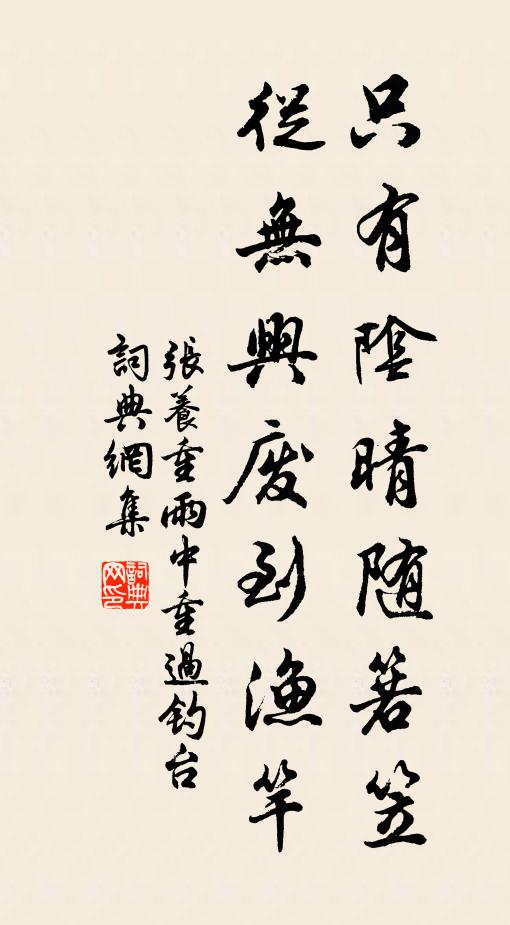 只有陰晴随箬笠
從無興废到漁竿
張養重雨中重過钓台
詞典網集
詞典网印